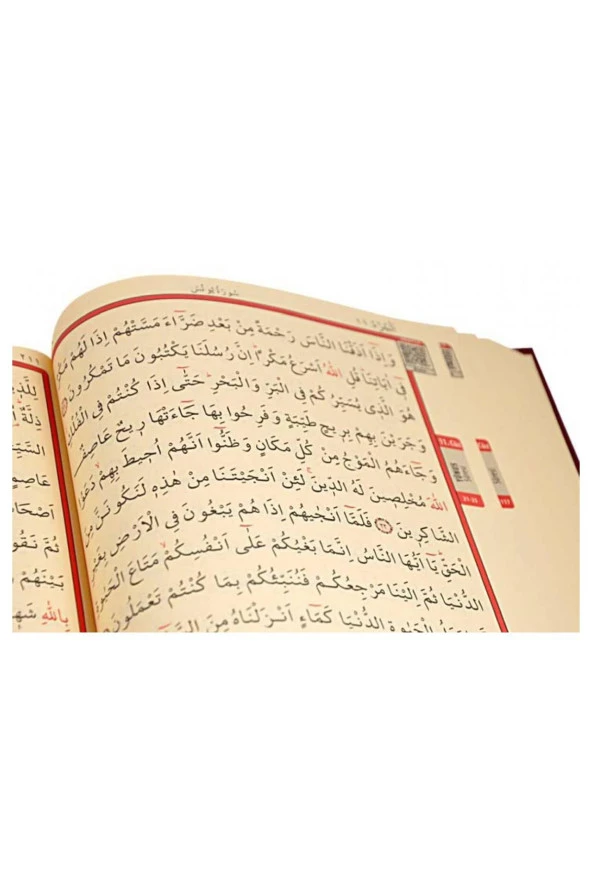 سُورَةُ يُونُسَ
اَلْجُزْءُ ١١
وَاِذَٓا اَذَقْنَا النَّاسَ رَحْمَةً مِنْ بَعْدِ ضَرَّٓاءَ مَسَّتْهُمْ اِذَا لَهُمْ
ف۪ٓي اٰيَاتِنَاۜ قُلِ اللّٰهُ اَسْرَعُ مَكْرًاۜ اِنَّ رُسُلَنَا يَكْتُبُونَ مَا تَمْكُرُونَ
هُوَ الَّذ۪ي يُسَيِّرُكُمْ فِي الْبَرِّ وَالْبَحْرِۜ حَتّٰٓى اِذَا كُنْتُمْ فِي
وَجَرَيْنَ بِهِمْ بِر۪يحٍ طَيِّبَةٍ وَفَرِحُوا بِهَا جَٓاءَتْهَا ر۪يحٌ عَاصِفٌ
وَجَٓاءَهُمُ الْمَوْجُ مِنْ كُلِّ مَكَانٍ وَظَنُّٓوا اَنَّهُمْ اُح۪يطَ بِهِمْۙ
اللّٰهَ مُخْلِص۪ينَ لَهُ الدّ۪ينَۚ لَئِنْ اَنْجَيْتَنَا مِنْ هٰذِه۪ لَنَكُونَنَّ مِنَ
الشَّاكِر۪ينَ ﴿٢٢﴾ فَلَمَّٓا اَنْجٰيهُمْ اِذَا هُمْ يَبْغُونَ فِي الْاَرْضِ بِغَيْرِ
الْحَقِّۜ يَٓا اَيُّهَا النَّاسُ اِنَّمَا بَغْيُكُمْ عَلٰٓى اَنْفُسِكُمْۙ مَتَاعَ
الدُّنْيَاۘ ثُمَّ اِلَيْنَا مَرْجِعُكُمْ فَنُنَبِّئُكُمْ بِمَا كُنْتُمْ تَعْمَلُونَ
الدُّنْيَا كَمَٓاءٍ اَنْزَلْنَاهُ مِنَ
11. Cüz
Cüz
YÛNUS
21-23
117
٢١١
ذِلَّةٌ
ثُمَّ نَقُو
بَيْنَهُمْ
بِاللّٰهِ